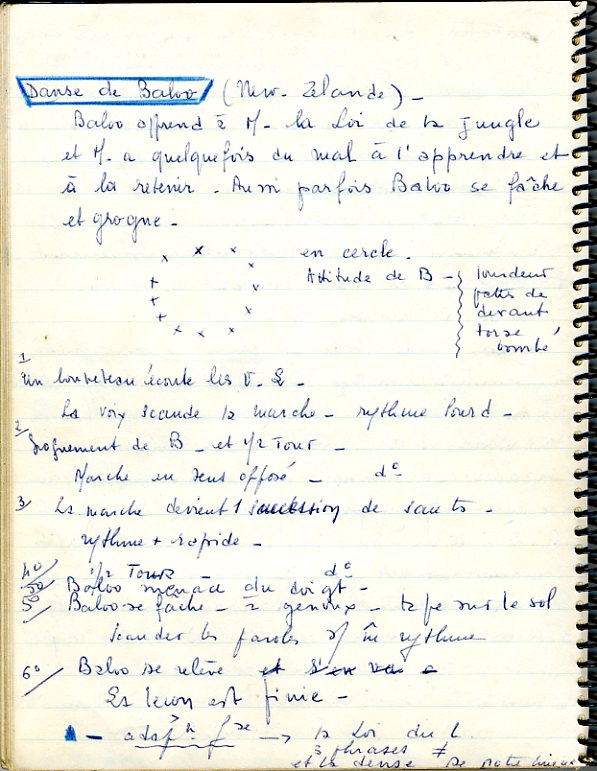 Danse de Baloo (New-Zélande) -
Baloo apprend à M. la Loi de la Jungle
et M. a quelquefois du mal à l'apprendre et
à la retenir. Aussi parfois Baloo se fâche
et grogne -
en cercle.
Attitude de B - lourdeur
pattes de
devant
torse
bombé
1
Un louveteau écoute les V. L -
La voix scande la marche - rythme lourd -
2/
Grognement de B - et 1/2 Tour -
Marche en sens opposé - d°
3/ La marche devient 1 succession de sauts -
rythme + rapide -
4° 1/2 Tour d°
5° Baloo menace du doigt -
5° Baloo se fâche - à genoux - tape sur le sol
scander les paroles m̂ rythme
6° Baloo se relève et s'en va
La leçon est finie -
→ la Loi du L.
3 phrases ≠
et la danse de notre